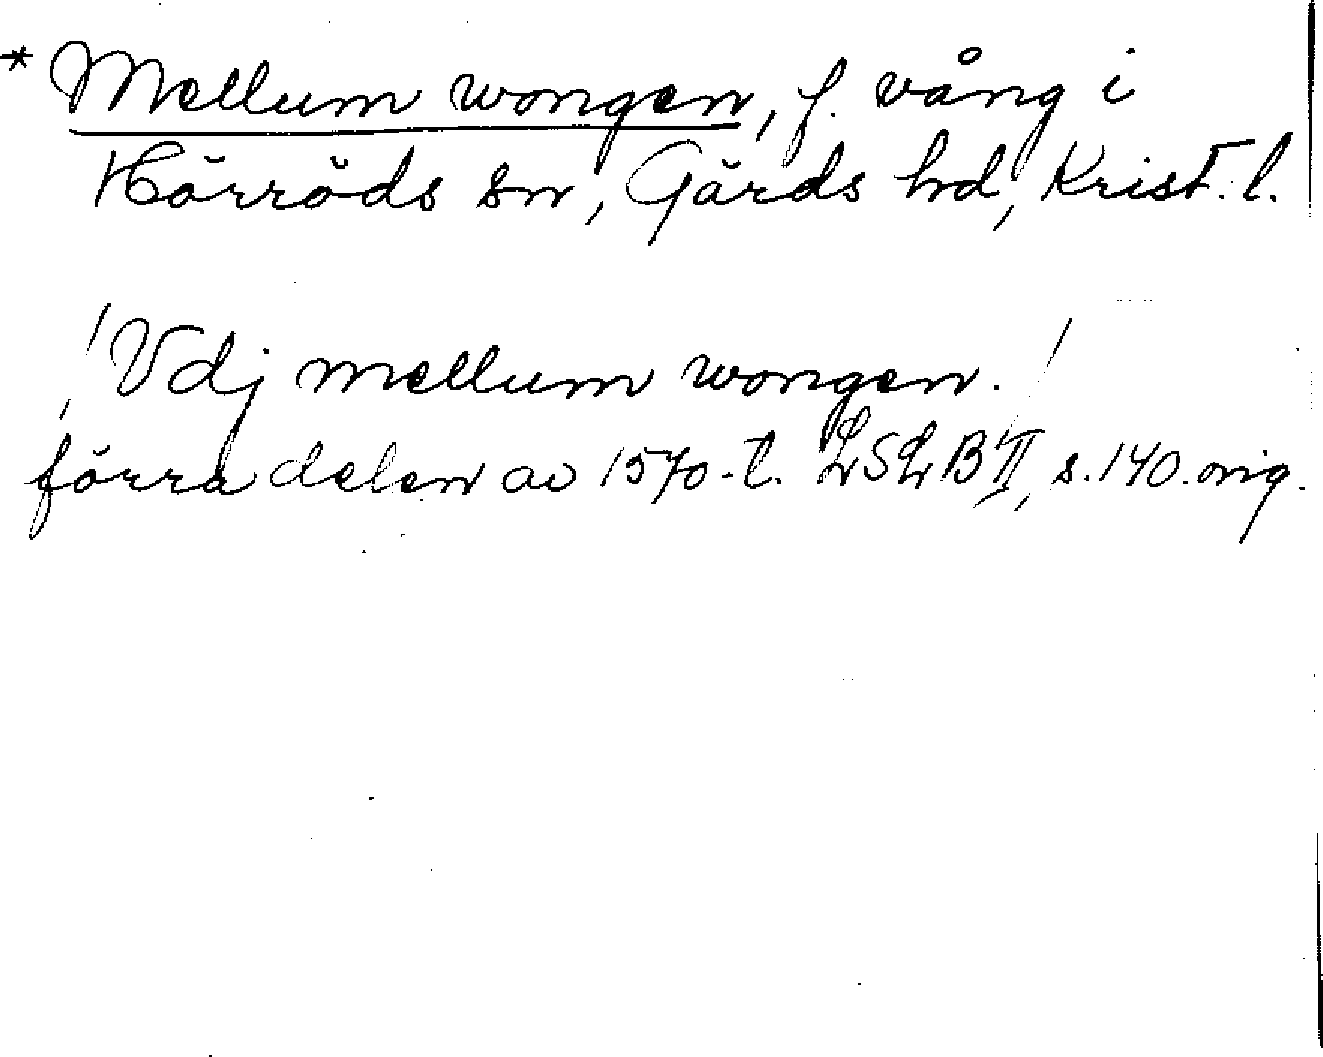 * Mellum wongen, f. vång i
Hörröds sn, Gärds hd, Krist. l.
/Vdj mellum wongen./
förra delen av 1570-t. LSLB II, s. 140. orig.